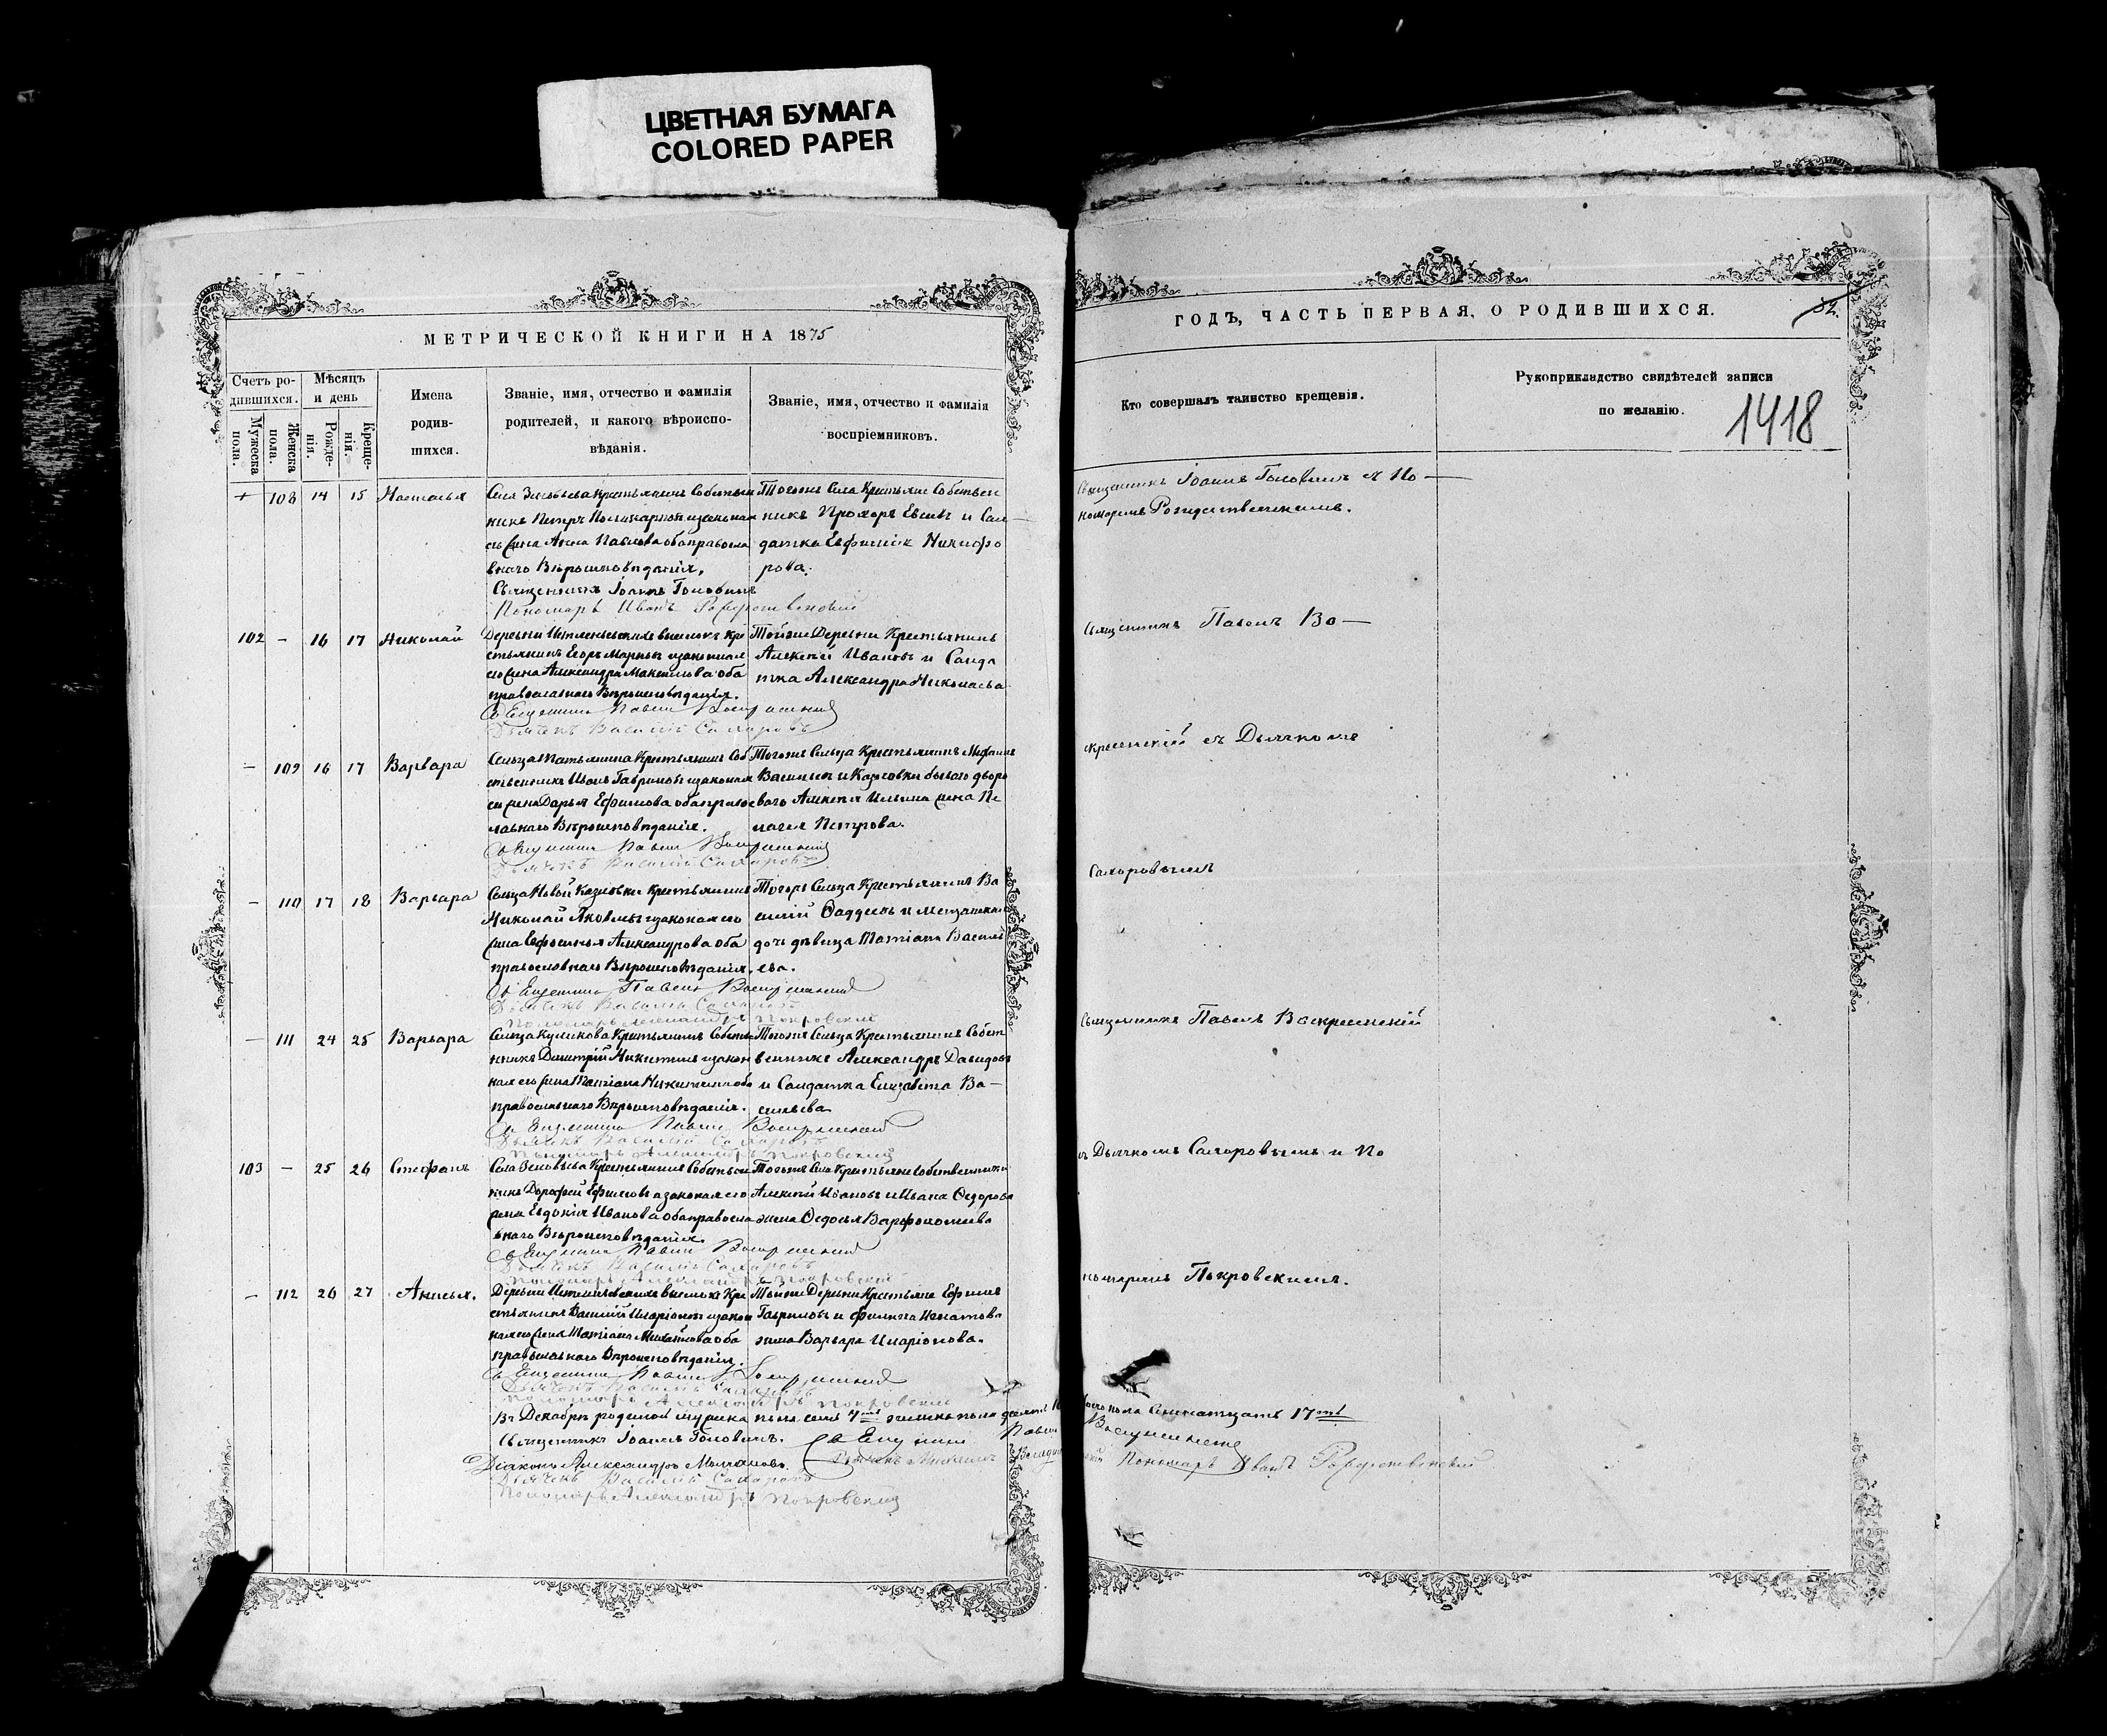 ЦВЕТНАЯ БУМАГА
COLORED PAPER
МЕТРИЧЕСКОЙ КНИГИ НА 1875
ГОДЪ, ЧАСТЬ ПЕРВАЯ, О РОДИВШИХСЯ.
32.
Счетъ ро-
дившихся.
Мужеска
пола.
Женска
пола.
Мѣсяцъ
и день
Рожде-
нія.
Креще-
нія.
Имена
родив-
шихся.
Званіе, имя, отчество и фамилія
родителей, и какого вѣроиспо-
вѣданія.
Званіе, имя, отчество и фамилія
воспріемниковъ.
Кто совершалъ таинство крещенія.
Рукоприкладство свидѣтелей записи
по желанію.
1418
+ 108 14 15 Настасья
Крестьянинъ Собствен
никъ Петръ
жена Анна Павлова оба правосла
внаго Вѣроисповѣданія.
Священникъ Іоаннъ Головинъ
Пономарь Иванъ Рождественскій
Тогожъ Села Собствен
никъ Прохоръ и Сол
датка Никифо
рова.
Священникъ Іоаннъ Головинъ съ По
номаремъ Рождественскимъ.
102 – 16 17 Николай
Деревни выселокъ Кре
стьянинъ Егоръ законная
его жена Александра оба
православнаго Вѣроисповѣданія.
Священникъ Павелъ Воскресенскій
Дьячекъ Василій Сахаровъ
Тойже Деревни Крестьянинъ
Алексѣй Ивановъ и Солда
тка Александра Николаева
Священникъ Павелъ Во
– 109 16 17 Варвара
Сельца Крестьянинъ Соб
ственникъ Иванъ Гавриловъ законная
его жена Дарья Ефимова оба право
славнаго Вѣроисповѣданія.
Священникъ Павелъ Воскресенскій
Дьячекъ Василій Сахаровъ
Тогожъ Сельца Крестьянинъ Михаилъ
Васильевъ и Козловки бывшаго дворо
ваго Алексѣя Ильина жена Пе
лагея Петрова.
скресенскій съ Дьячкомъ
– 110 17 18 Варвара
Сельца Новой Козловки Крестьянинъ
Николай Яковлевъ законная его
жена Евфосинья Александрова оба
православнаго Вѣроисповѣданія.
Священникъ Павелъ Воскресенскій
Дьячекъ Василій Сахаровъ
Пономарь Александръ Покровскій
Тогожъ Сельца Крестьянинъ Ва
силій Фаддеевъ и
дочь дѣвица Татіана Василь
ева.
Сахаровымъ
– 111 24 25 Варвара
Сельца Куликова Крестьянинъ Собствен
никъ Дмитрій Никитинъ закон
ная его жена Татіана оба
православнаго Вѣроисповѣданія.
Священникъ Павелъ Воскресенскій
Дьячекъ Василій Сахаровъ
Пономарь Александръ Покровскій
Тогожъ Сельца Крестьянинъ Собст
венникъ Александръ Давидовъ
и Солдатка Елизавета Ва
сильева
Священникъ Павелъ Воскресенскій
103 – 25 26 Стефанъ
Села Крестьянинъ Собствен
никъ Дорофей Ефимовъ законная его
жена Евдокія Иванова оба правосла
внаго Вѣроисповѣданія.
Священникъ Павелъ Воскресенскій
Дьячекъ Василій Сахаровъ
Пономарь Александръ Покровскій
Тогожъ Села Крестьяне Собственники
Алексѣй Ивановъ и Ивана Федорова
жена Федосья Варфоломеева
съ Дьячкомъ Сахаровымъ и По
– 112 26 27 Анисья.
Деревни выселокъ Кре
стьянинъ Василій Иларіоновъ закон
ная его жена Татіана оба
православнаго Вѣроисповѣданія.
Священникъ Павелъ Воскресенскій
Дьячекъ Василій Сахаровъ
Пономарь Александръ Покровскій
Тойже Деревни Крестьяне Ефимъ
Гавриловъ и Филипа
жена Варвара Иларіонова.
номаремъ Покровскимъ.
Въ Декабрѣ родилось мужска пола семь 7
пола семнатцать 17
Священникъ Іоаннъ Головинъ. Священникъ Павелъ Воскресенскій
Діаконъ Александръ Молчановъ.
Пономарь Иванъ Рождественскій
Дьячекъ Василій Сахаровъ
Пономарь Александръ Покровскій